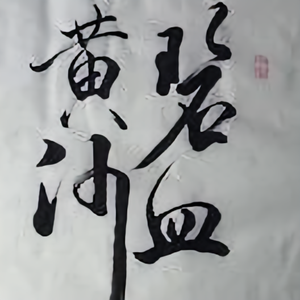 碧血
黄沙